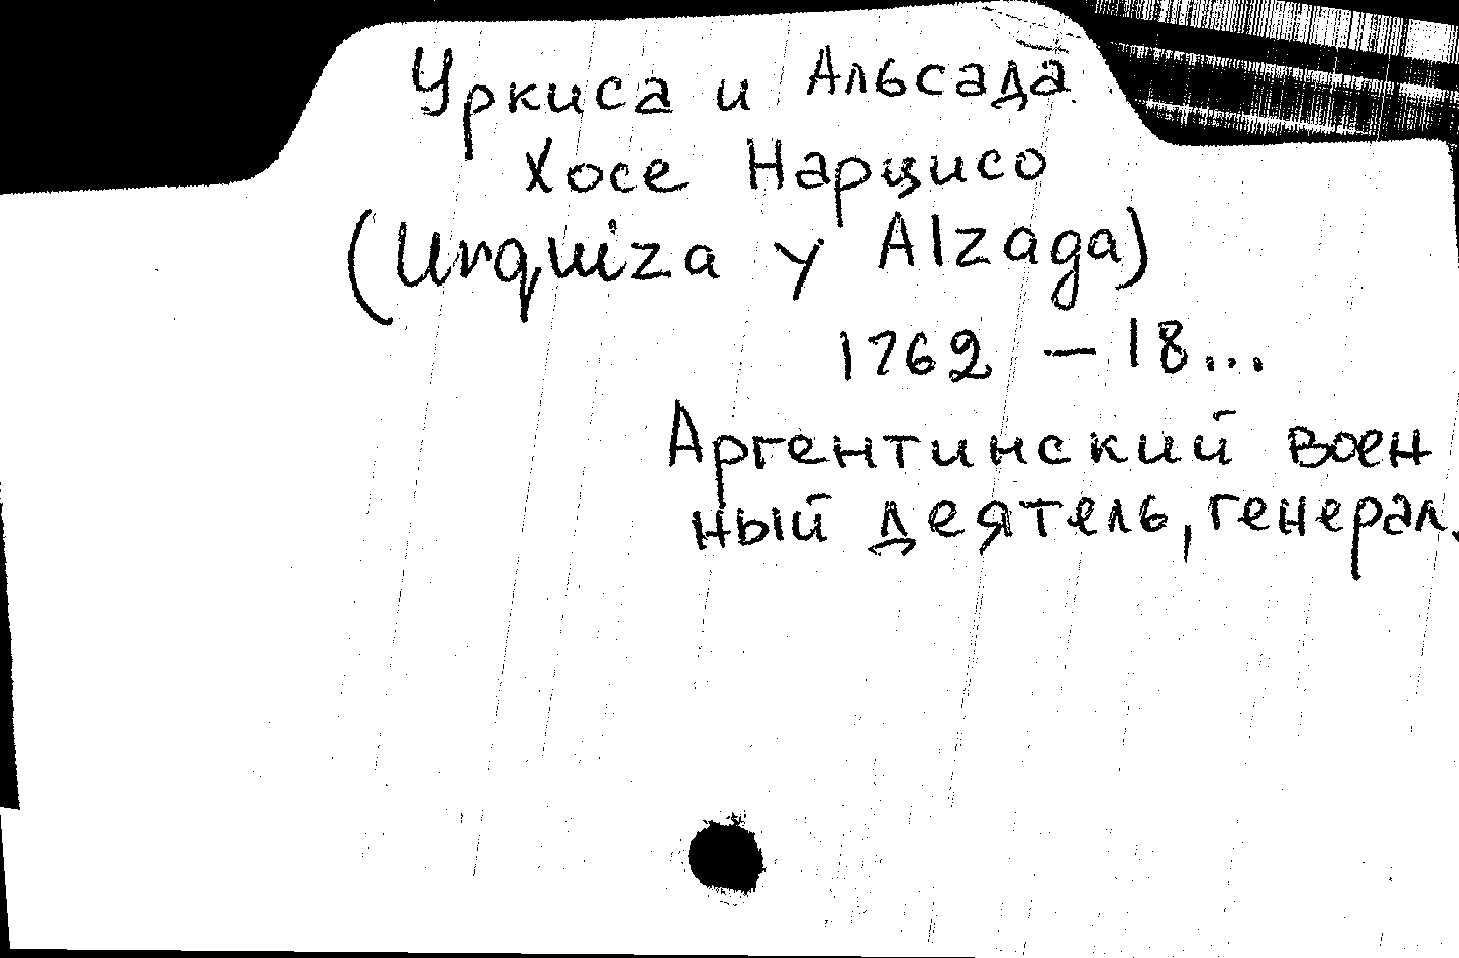 Уркиса и Альсада
Хосе Нарцисо
(Urquiza y Alzaga)
1762 – 18...
Аргентинский воен
ный деятель, генерал.